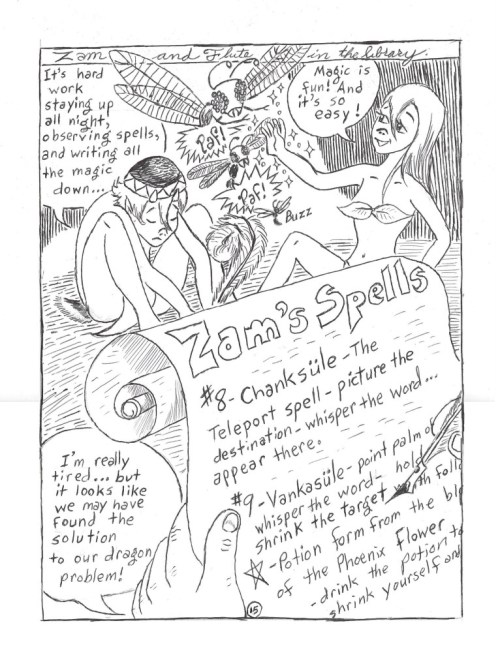 Zam and Flute in the library.
It's hard
work
staying up
all night,
observing spells,
and writing all
the magic
down...
Magic is
fun! And
it's so
easy!
Paf!
Paf!
Buzz
Zam's Spells
#8- Chanksüle - The
Teleport spell - picture the
destination - whisper the word...
appear there.
#9 - Vankasüle - point palm of
whisper the word - hold
shrink the target
-Potion form from the
of the Phoenix Flower
- drink the potion to
shrink yourself and
I'm really
tired... but
it looks like
we may have
found the
solution
to our dragon
problem!
15